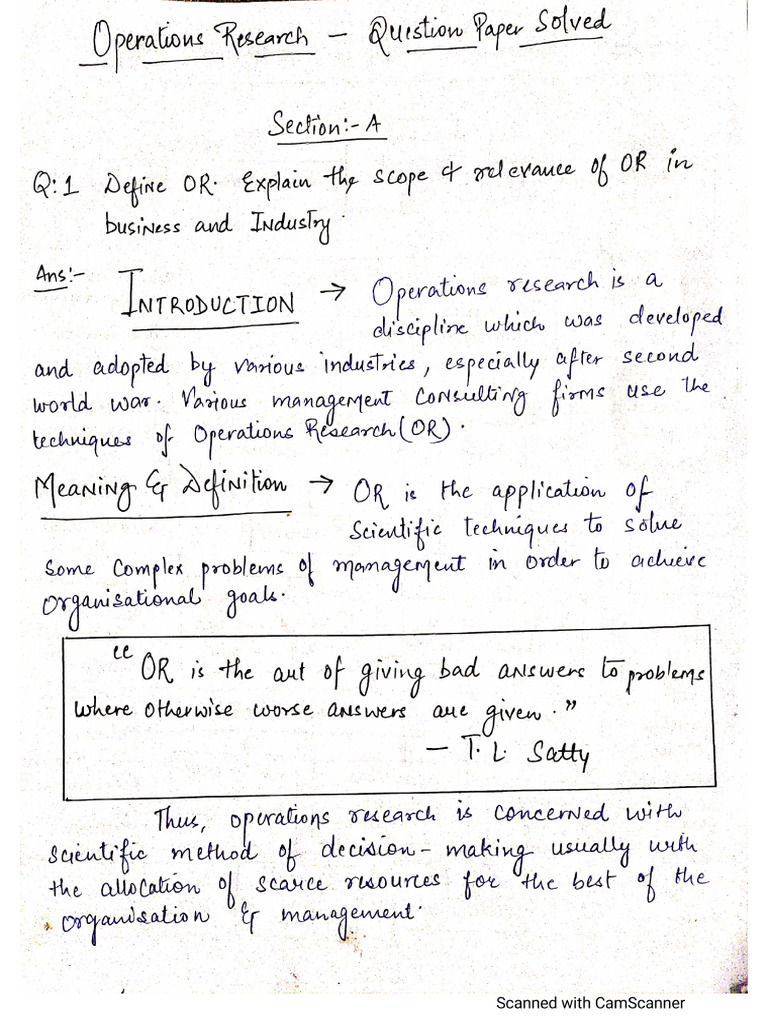 Operations Research - Question Paper Solved
Section:- A
Q:1 Define OR. Explain the scope & relevance of OR in
business and Industry.
Ans:- INTRODUCTION → Operations research is a
discipline which was developed
and adopted by various industries, especially after second
world war. Various management consulting firms use the
techniques of Operations Research (OR).
Meaning & Definition → OR is the application of
scientific techniques to solve
some complex problems of management in order to achieve
organisational goals.
"OR is the art of giving bad answers to problems
where otherwise worse answers are given."
- T. L. Satty
Thus, operations research is concerned with
scientific method of decision-making usually with
the allocation of scarce resources for the best of the
organisation & management.
Scanned with CamScanner